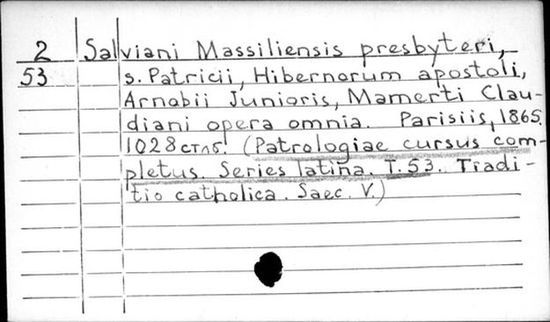 2 Salviani Massiliensis presbyteri,
53 s. Patricii, Hibernorum apostoli,
Arnobii Junioris, Mamerti Clau-
diani opera omnia. Parisiis, 1865.
1028 стлб. (Patrologiae cursus com-
pletus. Series latina. T. 53. Tradi-
tio catholica. Saec. V.)